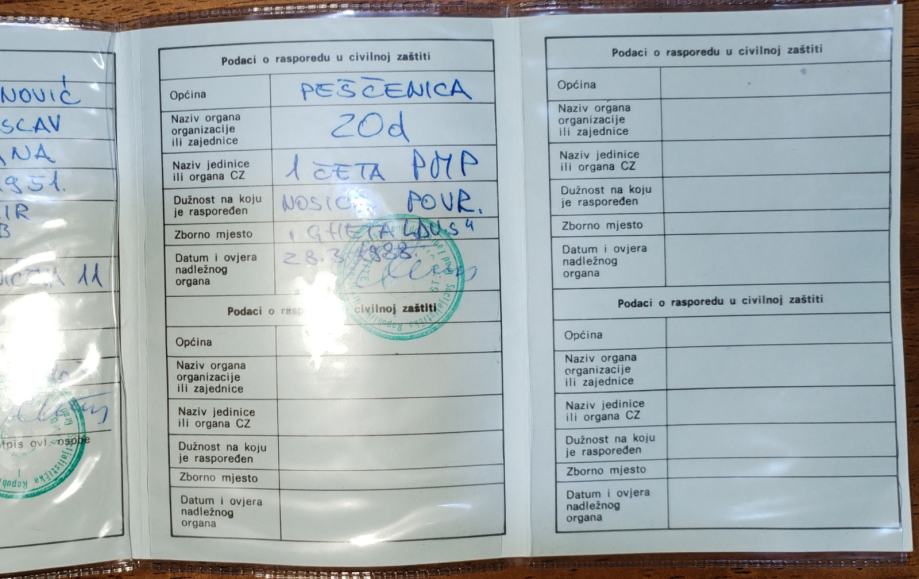 NOVIĆ
SCAV
ANA
1951.
IR
B
11
Podaci o rasporedu u civilnoj zaštiti
Općina PEŠČENICA
Naziv organa
organizacije
ili zajednice
ZOd
Naziv jedinice
ili organa CZ
1 ČETA PMP
Dužnost na koju
je raspoređen
NOSIOC POVR.
Zborno mjesto
Datum i ovjera
nadležnog
organa
28.3.1988.
Podaci o civilnoj zaštiti
Općina
Naziv organa
organizacije
ili zajednice
Naziv jedinice
ili organa CZ
Dužnost na koju
je raspoređen
Zborno mjesto
Datum i ovjera
nadležnog
organa
Podaci o rasporedu u civilnoj zaštiti
Općina
Naziv organa
organizacije
ili zajednice
Naziv jedinice
ili organa CZ
Dužnost na koju
je raspoređen
Zborno mjesto
Datum i ovjera
nadležnog
organa
Podaci o rasporedu u civilnoj zaštiti
Općina
Naziv organa
organizacije
ili zajednice
Naziv jedinice
ili organa CZ
Dužnost na koju
je raspoređen
Zborno mjesto
Datum i ovjera
nadležnog
organa